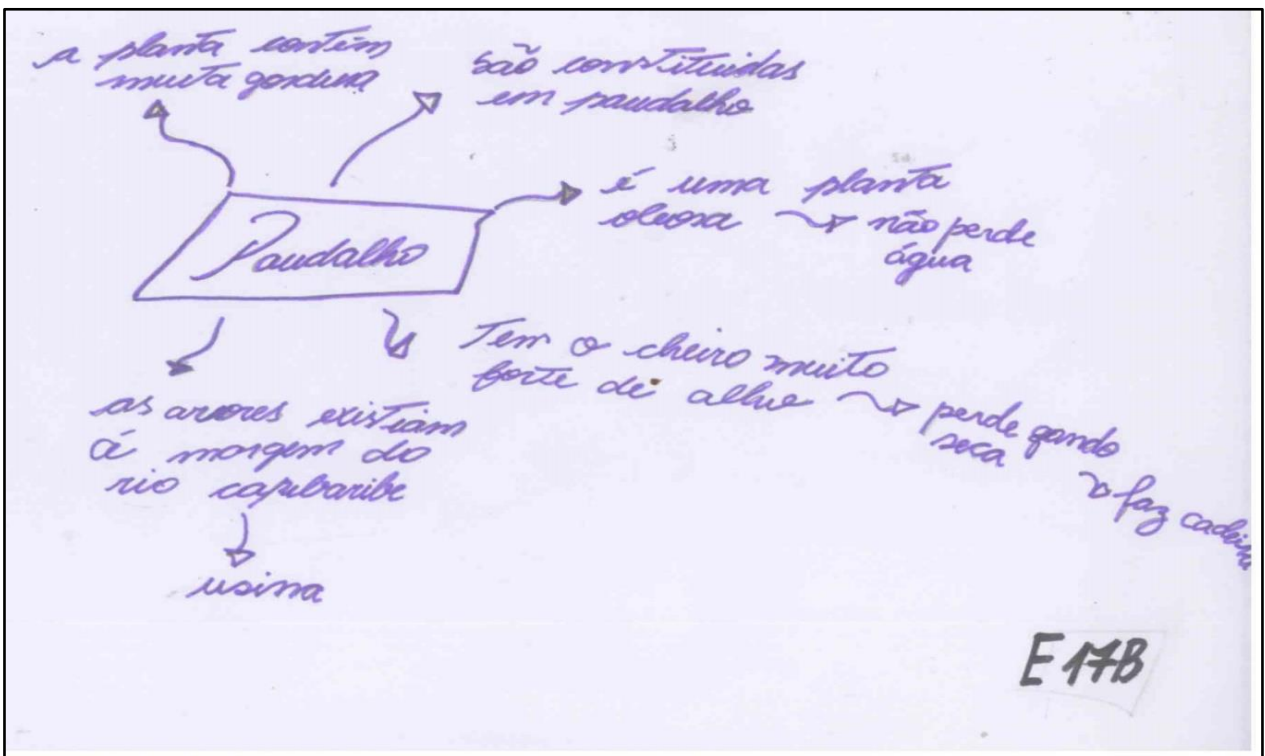 a planta contém
muita gordura
são constituidas
em paudalho
é uma planta
oleosa
não perde
água
Paudalho
Tem o cheiro muito
forte de alho
perde qando
seca
faz cadeira
as arvores existiam
á margem do
rio capibaribe
usina
E 17B